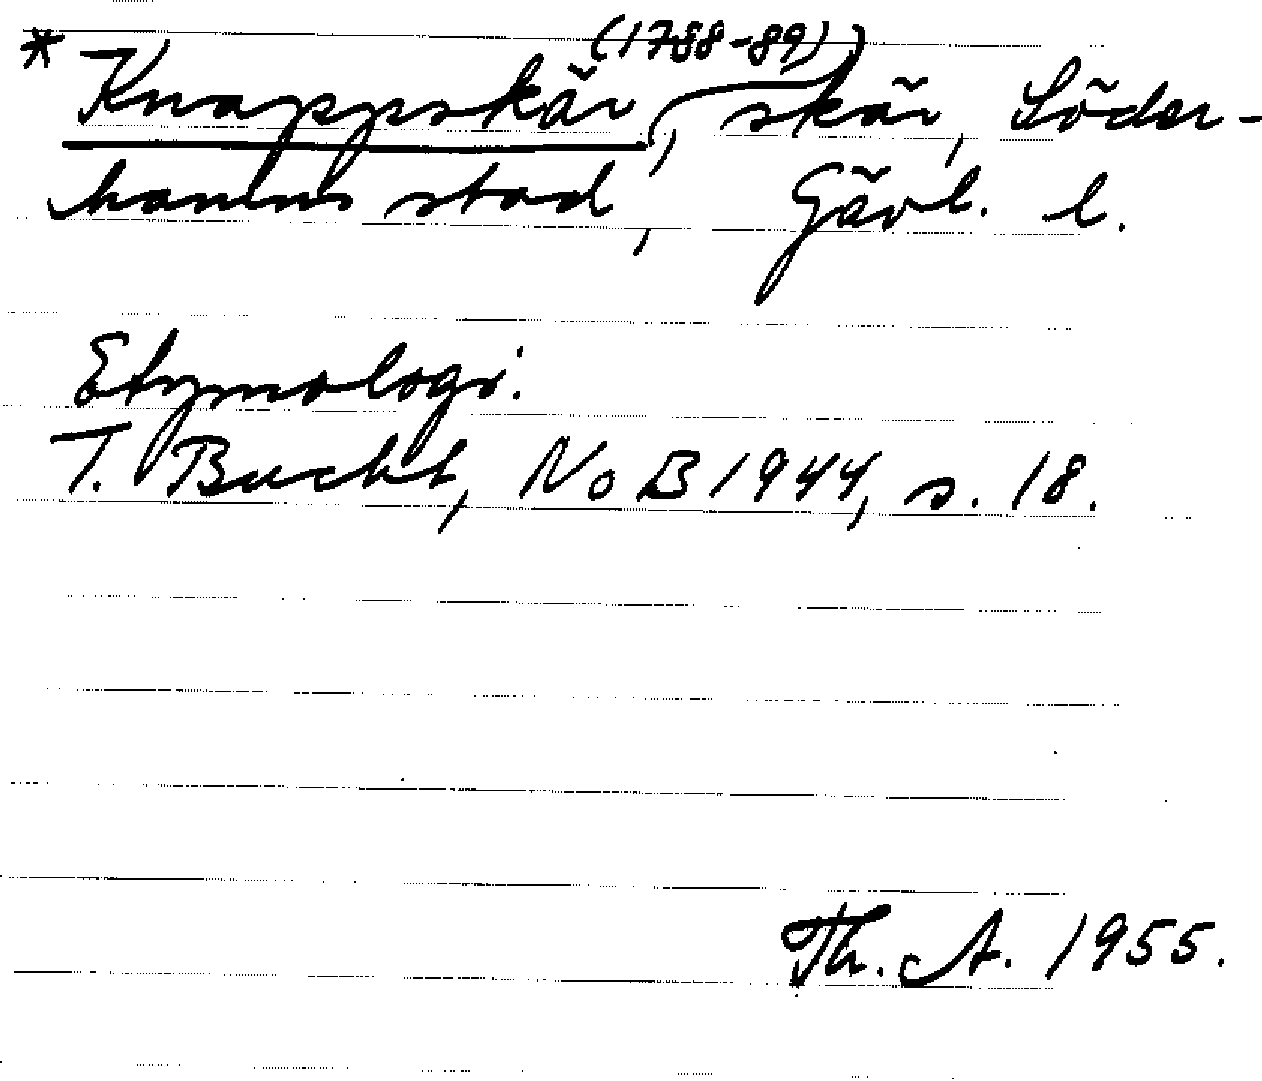 (1788-89)
* Knappskär, skär, Söder-
hamns stad, Gävl. l.
Etymologi.
T. Bucht, NoB 1944, s. 18.
Th. A. 1955.